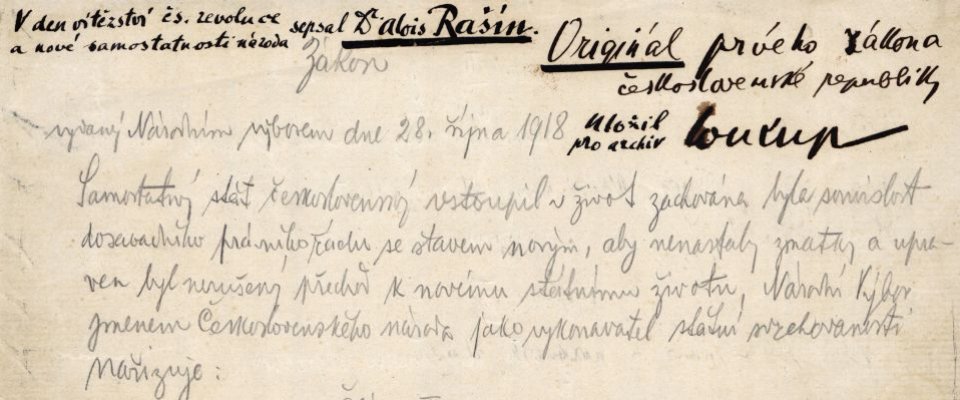 V den vítězství čs. revoluce
a nové samostatnosti národa sepsal Dr Alois Rašín.
Originál prvého zákona
československé republiky
Uložil
pro archiv Soukup
Zákon
vydaný Národním výborem dne 28. října 1918
Samostatný stát československý vstoupil v život zachována byla souvislost
dosavadního právního řádu se stavem novým, aby nenastaly zmatky a upra-
ven byl nerušený přechod k novému státnímu životu, Národní Výbor
jmenem Československého národa jako vykonavatel státní svrchovanosti
nařizuje: